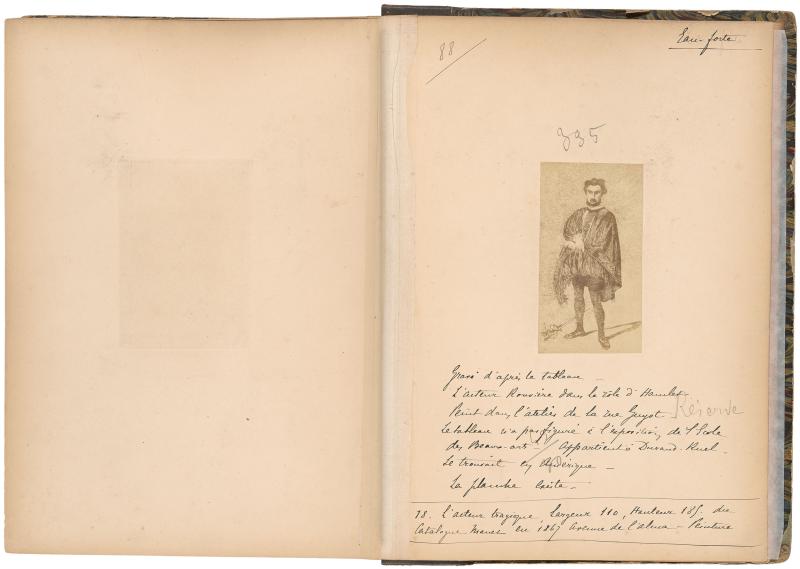 88
Eau-forte
335
Gravé d'après le tableau —
L'acteur Rouvière dans le rôle d'Hamlet
Peint dans l'atelier de la rue Guyot Réserve
Le tableau n'a pas figuré à l'exposition de l'Ecole
des Beaux-arts — Appartient à Durand-Ruel.
Se trouvait en Amérique —
La planche existe —
18. L'acteur tragique Largeur 110, Hauteur 185. du
Catalogue Manet en 1867 Avenue de l'alma — Peinture